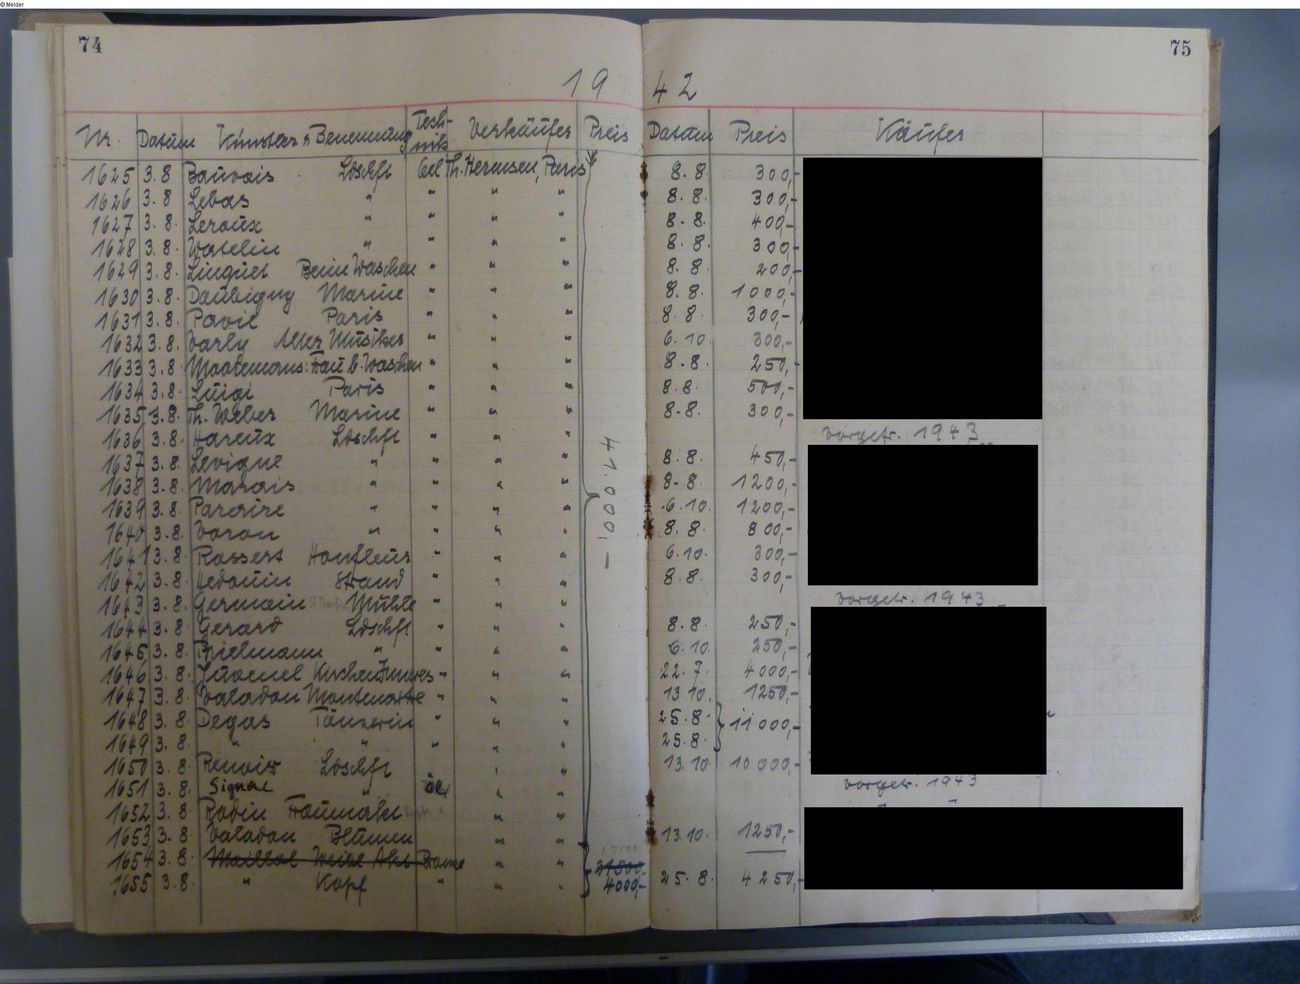 © Melder
74 75
19 42
Nr. Datum Künstler & Benennung Tech-nik Verkäufer Preis Datum Preis Käufer
1625 3.8 Bauvais Ldschft Oel Th. Hermsen, Paris 8.8. 300,-
1626 3.8. Lebas " " " " 8.8. 300,-
1627 3.8. Leroux " " " " 8.8. 400,-
1628 3.8. Watelin " " " " 8.8. 300,-
1629 3.8. Linguet Beim Waschen " " " 8.8. 200,-
1630 3.8. Daubigny Marine " " " 8.8. 1000,-
1631 3.8. Pavil Paris " " " 8.8. 300,-
1632 3.8. Varly Alter Musiker " " " 6.10. 300,-
1633 3.8. Frau b. Waschen " " " 8.8. 250,-
1634 3.8. Luigi Paris " " " 8.8. 500,-
1635 3.8. Th. Weber Marine " " " 8.8. 300,-
1636 3.8. Hareux Ldschft " " " vorgetr. 1943
1637 3.8. Levigne " " " " 8.8. 450,-
1638 3.8. Marais " " " " 8.8. 1200,-
1639 3.8. " " " " 6.10. 1200,-
1640 3.8. Voron " " " " 8.8. 800,-
1641 3.8. Rossert Honfleur " " " 6.10. 300,-
1642 3.8. Hedouin Strand " " " 8.8. 300,-
1643 3.8. Germain Mühle " " " vorgetr. 1943
1644 3.8. Gerard Ldschft " " " 8.8. 250,-
1645 3.8. Thielmann " " " " 6.10. 250,-
1646 3.8. Juvenel " " " 22.7. 4000,-
1647 3.8. Valadon Montmartre " " " 13.10. 1250,-
1648 3.8. Degas Tänzerin " " " 25.8. 11000,-
1649 3.8. " " " " " 25.8.
1650 3.8. Renoir Ldschft " " 13.10 10000,-
1651 3.8. Signac " Öl " " vorgetr. 1943
1652 3.8. Rodin " " "
1653 3.8. Valadon Blumen " " 13.10. 1250,-
1654 3.8. Maillol Weibl. Akt Bronze " " 21500,-
1655 3.8. " Kopf " " 4000,- 25.8. 4250,-
41.000,-